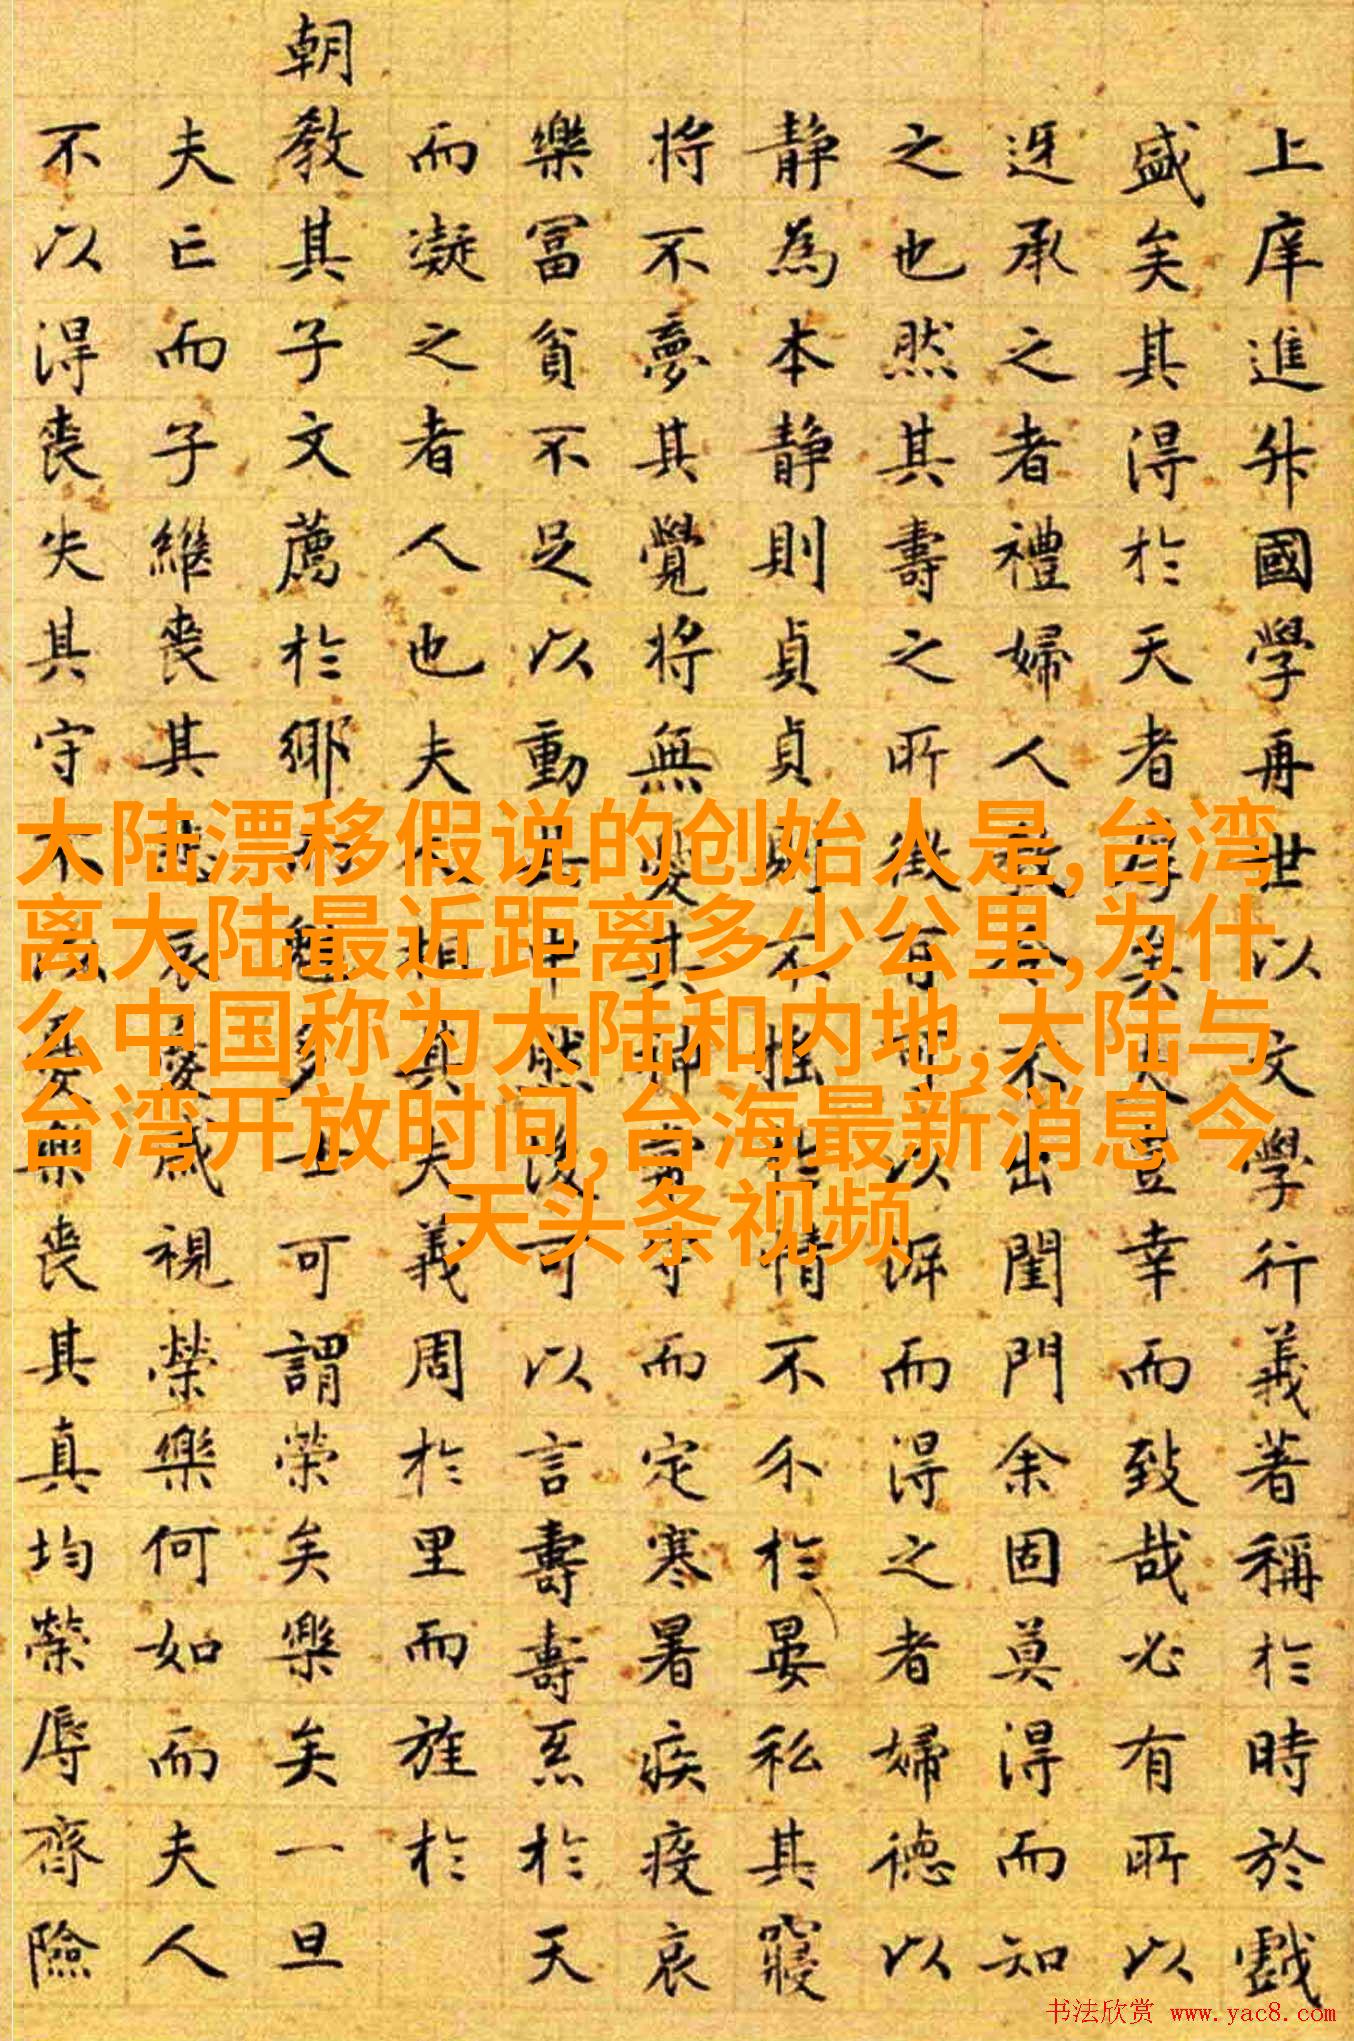 上庠進升國學再世以文學行義著稱於時於戲
盛矣其得於天者厚矣夫豈幸而致哉必有所以
迓承之者禮婦人教令不出閨門余固莫得而知
之也然其壽之所徵有可以而得之者婦德以
靜為本靜則貞貞則不搖情不分於晏私其寢
將不夢其覺將無憂其神常守而定寒暑疾疫哀
樂富貧不足以動其中然後可以言壽壽烝於天
而凝之者人也夫人相其夫義周於里而旌於
朝教其子文薦於鄉而魁多士可謂榮矣樂矣一旦
夫亡而子繼喪其悲哀戚視榮樂何如而夫人
不以得喪失其守不以樂喪其真均榮辱齊險
大陆漂移假说的创始人是,台湾
离大陆最近距离多少公里,为什
么中国称为大陆和内地,大陆与
台湾开放时间,台海最新消息今
天头条视频
书法欣赏 www.yac8.com